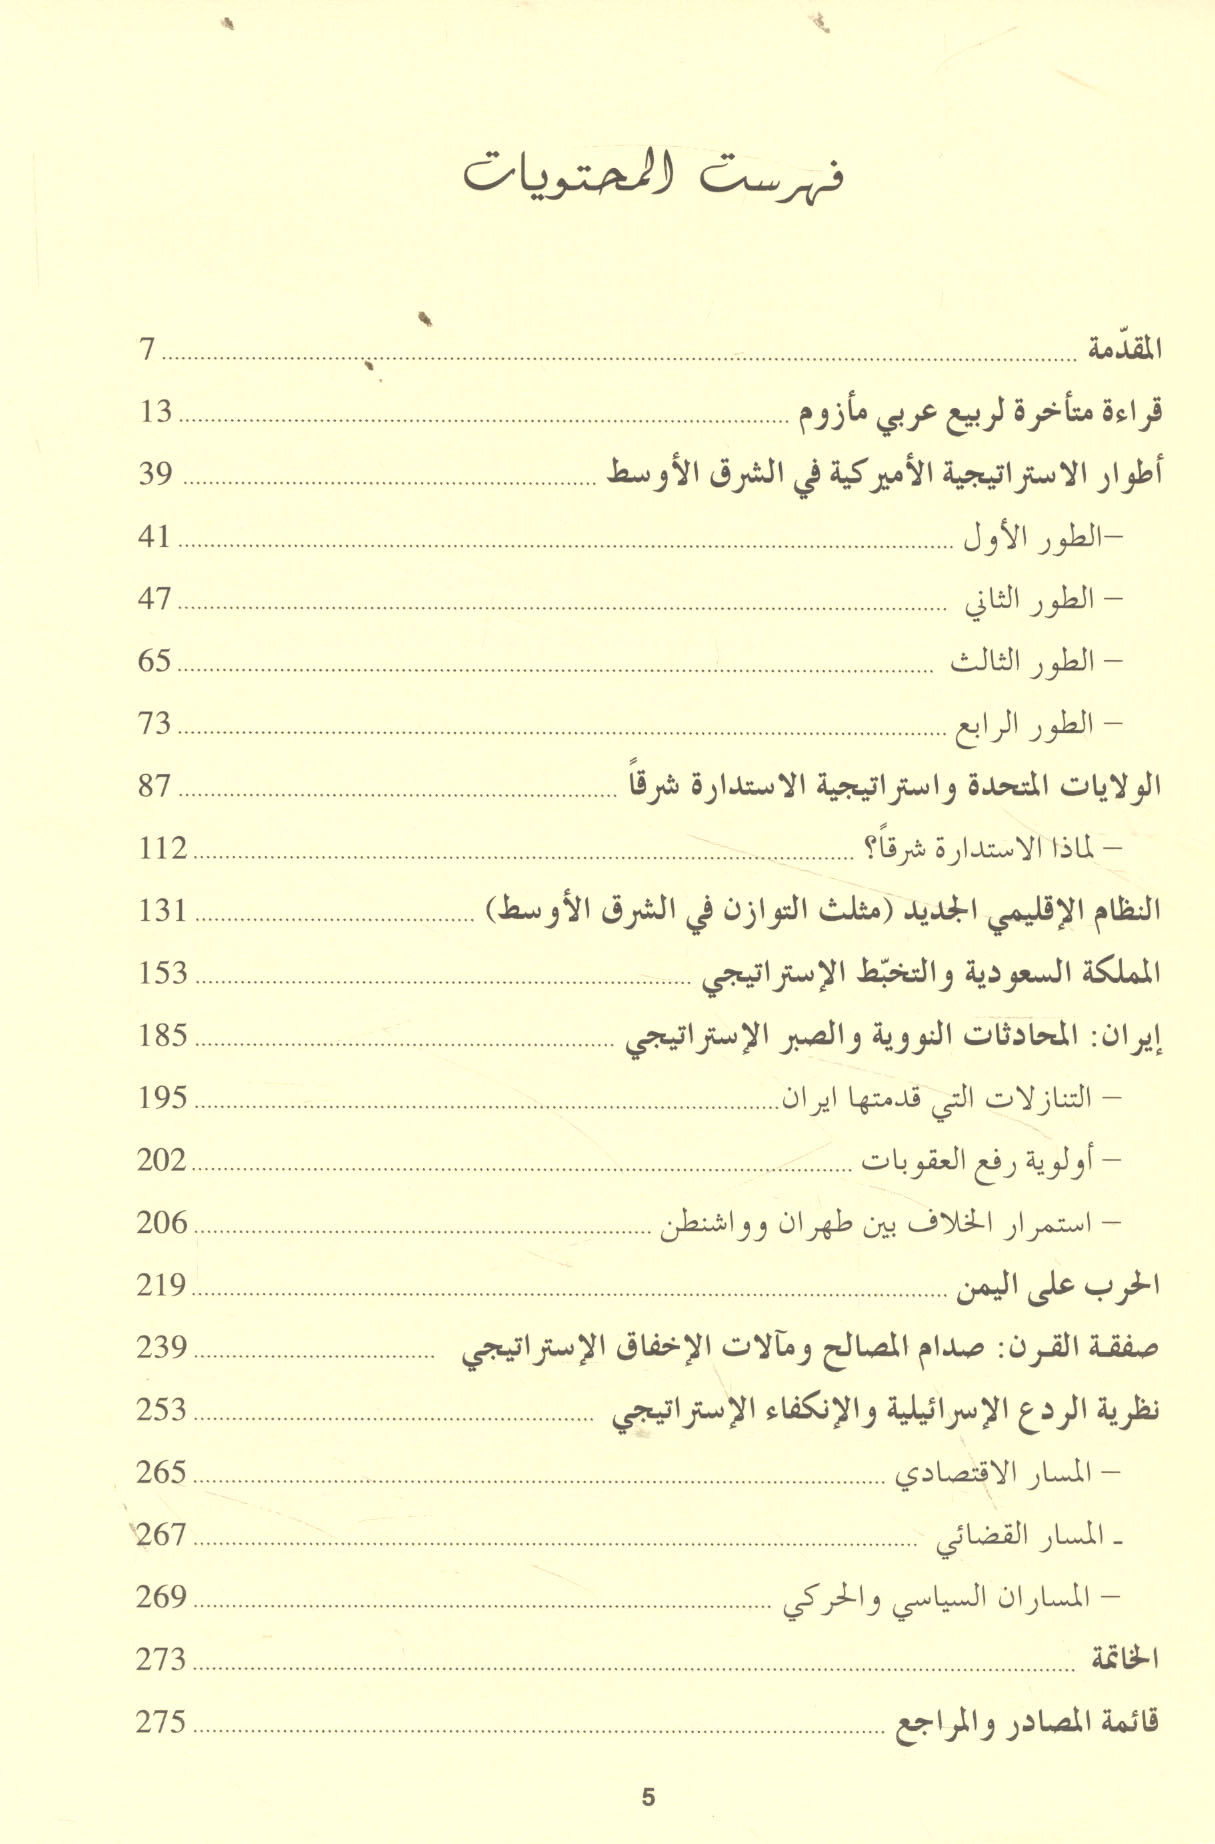 فهرست المحتويات
المقدّمة ........ 7
قراءة متأخرة لربيع عربي مأزوم ........ 13
أطوار الاستراتيجية الأميركية في الشرق الأوسط ........ 39
–الطور الأول ........ 41
– الطور الثاني ........ 47
– الطور الثالث ........ 65
– الطور الرابع ........ 73
الولايات المتحدة واستراتيجية الاستدارة شرقاً ........ 87
– لماذا الاستدارة شرقاً؟ ........ 112
النظام الإقليمي الجديد (مثلث التوازن في الشرق الأوسط) ........ 131
المملكة السعودية والتخبّط الإستراتيجي ........ 153
إيران: المحادثات النووية والصبر الإستراتيجي ........ 185
– التنازلات التي قدمتها ايران ........ 195
– أولوية رفع العقوبات ........ 202
– استمرار الخلاف بين طهران وواشنطن ........ 206
الحرب على اليمن ........ 219
صفقة القرن: صدام المصالح ومآلات الإخفاق الإستراتيجي ........ 239
نظرية الردع الإسرائيلية والإنكفاء الإستراتيجي ........ 253
– المسار الاقتصادي ........ 265
- المسار القضائي ........ 267
– المساران السياسي والحركي ........ 269
الخاتمة ........ 273
قائمة المصادر والمراجع ........ 275
5